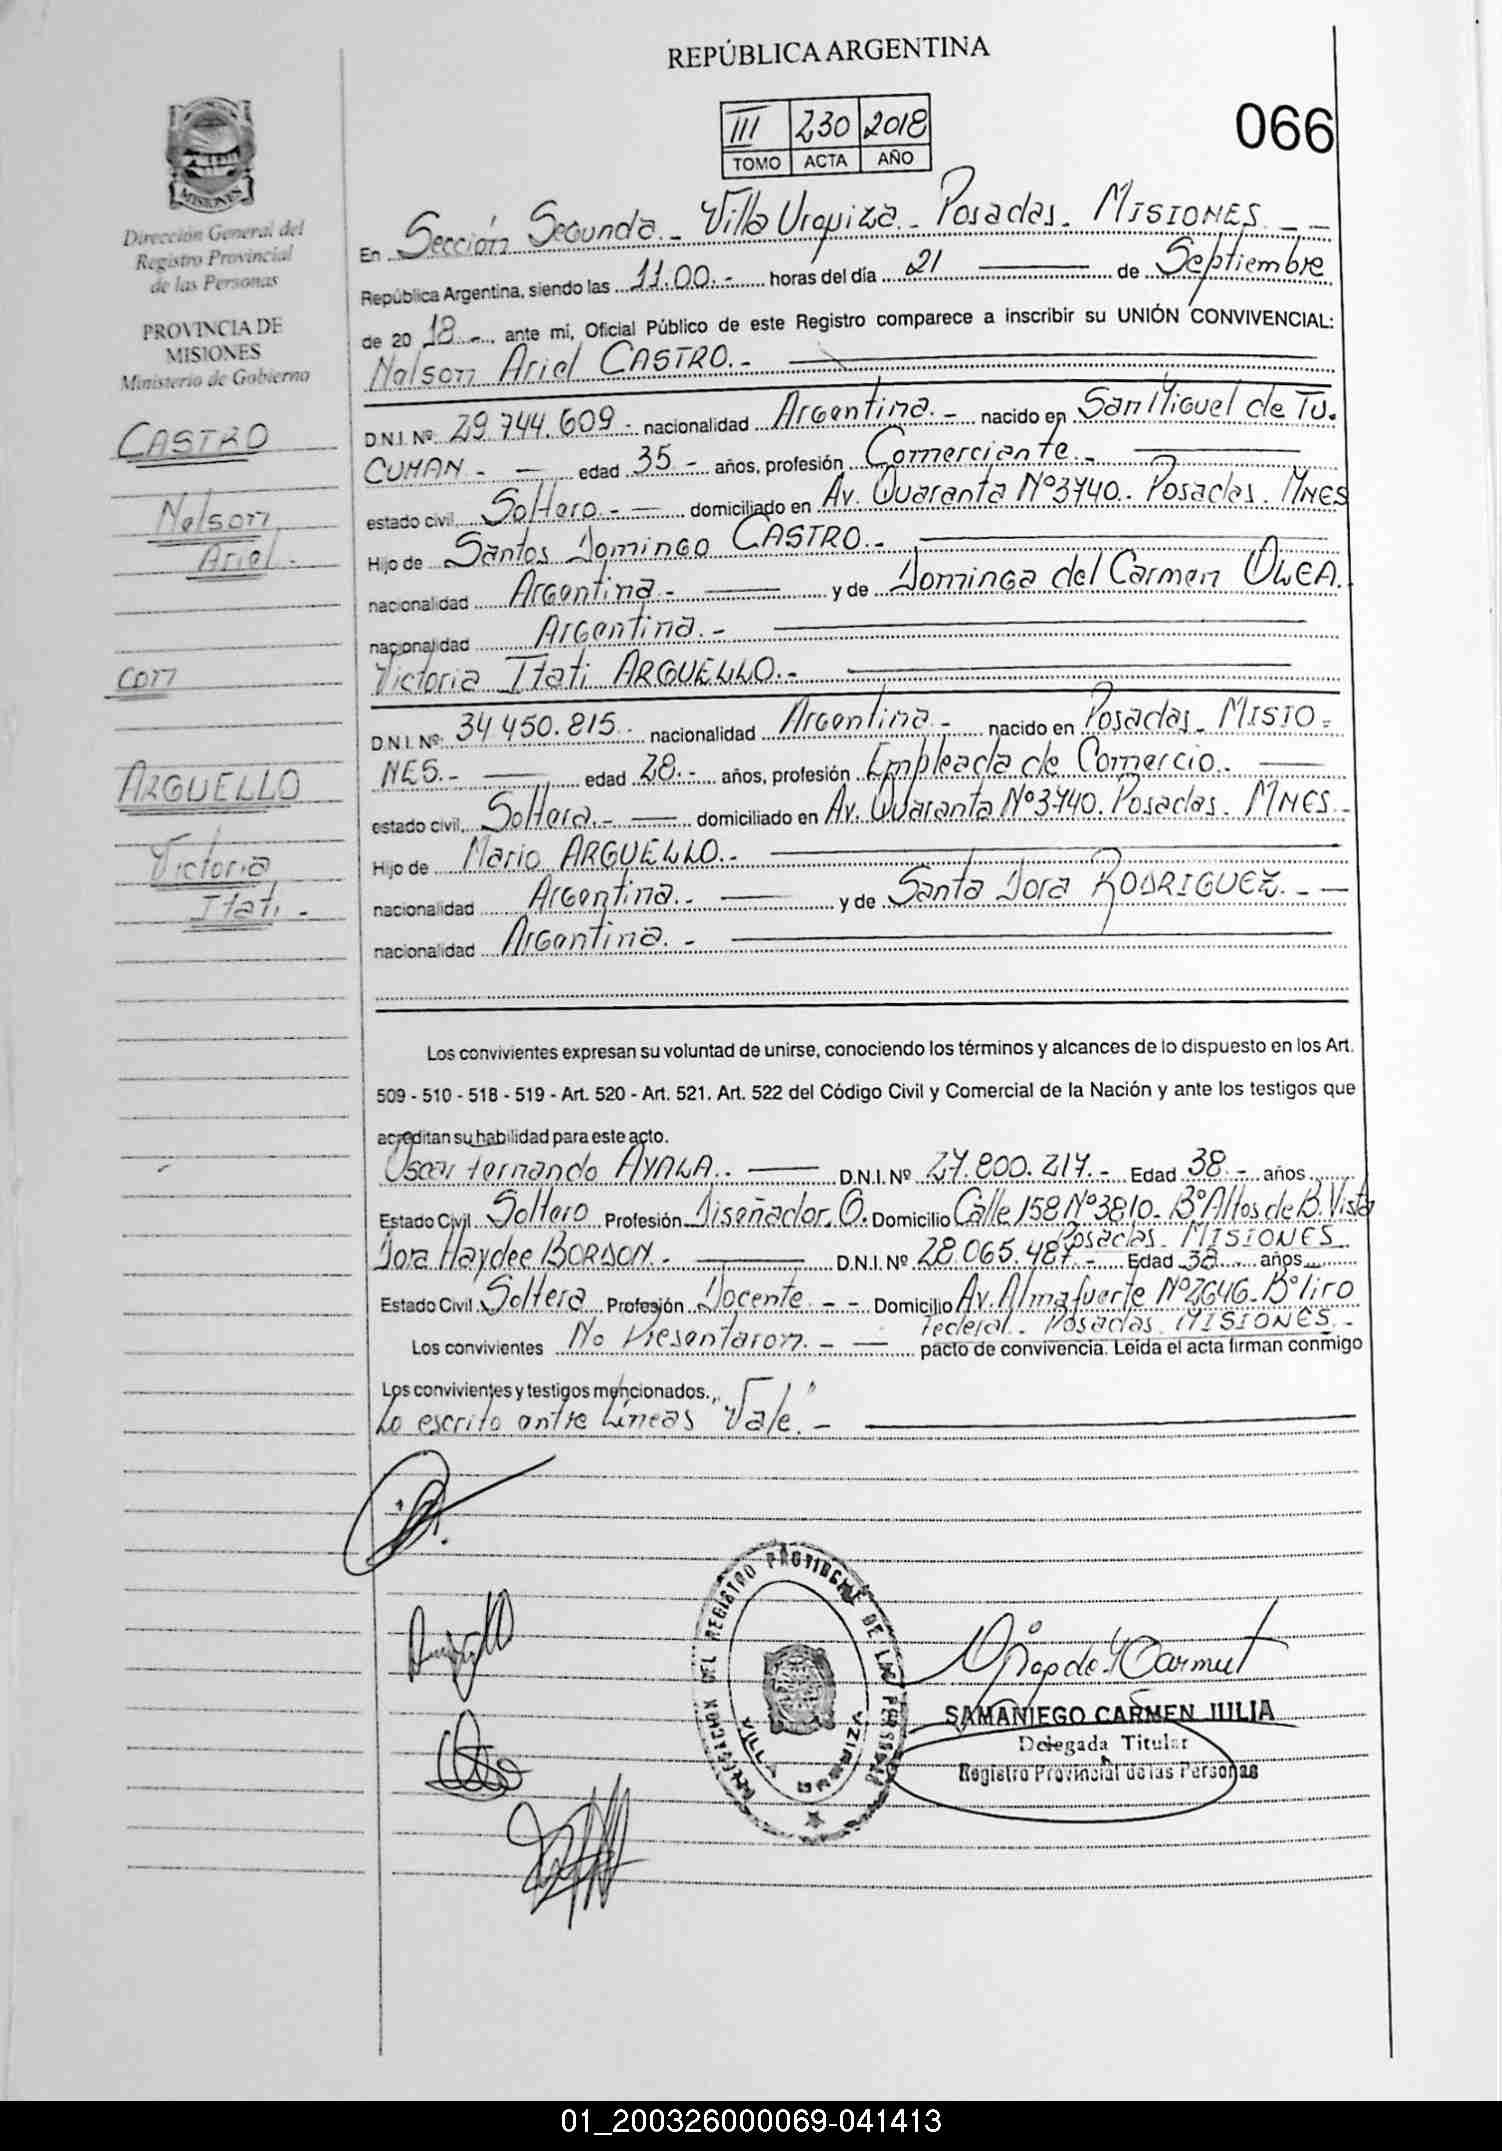 REPÚBLICA ARGENTINA
III 230 2018
TOMO ACTA AÑO
066
MISIONES
Dirección General del
Registro Provincial
de las Personas
PROVINCIA DE
MISIONES
Ministerio de Gobierno
CASTRO
Nelson
Ariel.-
con
ARGUELLO
Victoria
Itati.-
En Sección Segunda.- Villa Urquiza.- Posadas.- MISIONES.- -
República Argentina, siendo las 11.00.- horas del día 21 de Septiembre
de 2018.-, ante mí, Oficial Público de este Registro comparece a inscribir su UNIÓN CONVIVENCIAL:
Nelson Ariel CASTRO.-
D.N.I. Nº 29.744.609.- nacionalidad Argentina.- nacido en San Miguel de TU.
CUMAN.- - edad 35.- años, profesión Comerciante.-
estado civil Soltero.- - domiciliado en Av. Quaranta Nº3740.. Posadas. MNES
Hijo de Santos Domingo CASTRO.-
nacionalidad Argentina.- y de Dominga del Carmen OLEA.
nacionalidad Argentina.-
Victoria Itati ARGUELLO.-
D.N.I. Nº 34.450.815.- nacionalidad Argentina.- nacido en Posadas. MISIO-
NES.- edad 28.- años, profesión Empleada de Comercio.-
estado civil, Soltera.- domiciliado en Av. Quaranta Nº3740. Posadas. MNES.-
Hijo de Mario ARGUELLO.-
nacionalidad Argentina.- y de Santa Dora RODRIGUEZ.- -
nacionalidad Argentina.-
Los convivientes expresan su voluntad de unirse, conociendo los términos y alcances de lo dispuesto en los Art.
509 - 510 - 518 - 519 - Art. 520 - Art. 521. Art. 522 del Código Civil y Comercial de la Nación y ante los testigos que
acreditan su habilidad para este acto.
Oscar Fernando AYALA.. D.N.I. Nº 27.800.217.- Edad 38.- años
Estado Civil Soltero Profesión Diseñador. G. Domicilio Calle 158 Nº3810. Bº Altos de B. Vista
Posadas. MISIONES
Dora Haydee BORDON.- D.N.I. Nº 28.065.487.- Edad 38 años
Estado Civil Soltera Profesión Docente.- - Domicilio Av. Almafuerte Nº2646. Bº Tiro
Federal. Posadas. MISIONES.-
Los convivientes No Presentaron.- - pacto de convivencia. Leída el acta firman conmigo
Los convivientes y testigos mencionados.
Lo escrito entre Líneas "Vale".-
DELEGACION DEL REGISTRO PROVINCIAL DE LAS PERSONAS
VILLA URQUIZA
SAMANIEGO CARMEN JULIA
Delegada Titular
Registro Provincial de las Personas
01_200326000069-041413